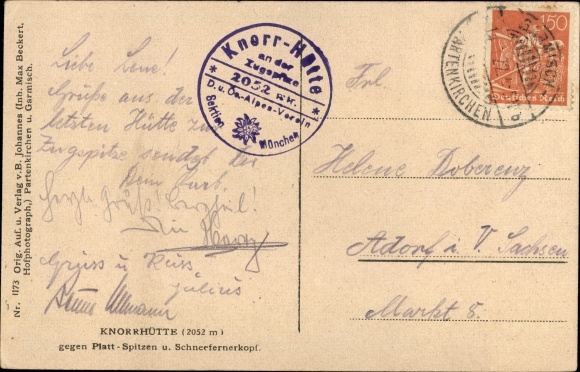 Nr. 1173 Orig. Auf. u. Verlag v. B. Johannes (Inh. Max Beckert,
Hofphotograph,) Partenkirchen u. Garmisch.
Liebe Lene!
Grüße aus der
letzten Hütte zur
Zugspitze sendet dir
Dein
Gruss u. Kuss
Julius
KNORRHÜTTE (2052 m)
gegen Platt-Spitzen u. Schneefernerkopf.
Knorr-Hütte
an der
Zugspitze
* 2052 m. *
D. u. Oe. Alpen-Verein
Sektion München
PARTENKIRCHEN
150
Deutsches Reich
Frl.
Helene Doberenz
Adorf i. V. Sachsen
Markt 8.